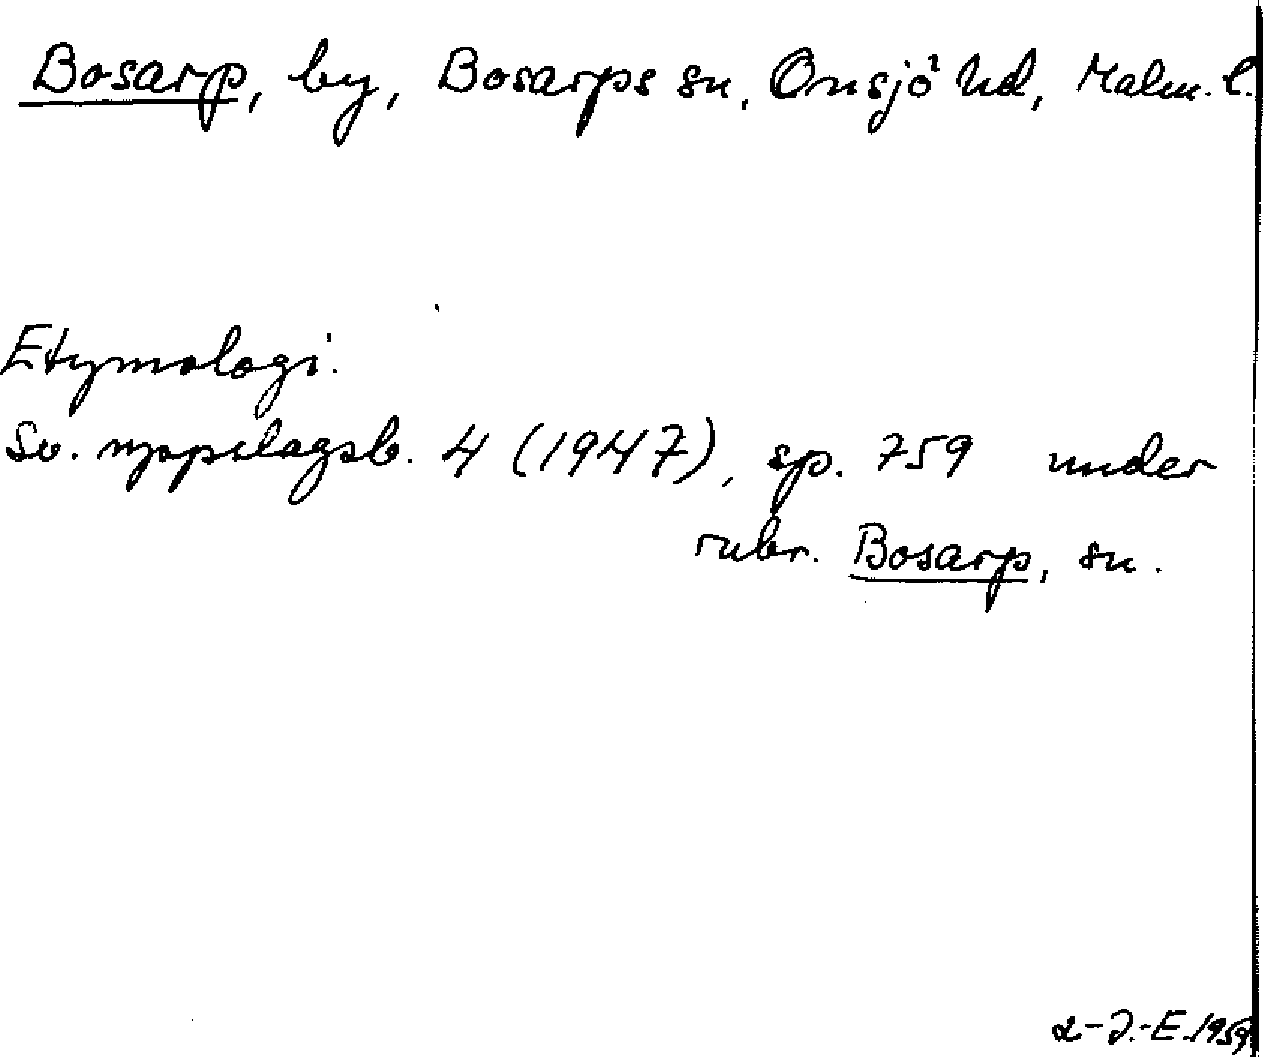 Bosarp, by, Bosarps sn, Onsjö hd, Malm. l.
Etymologi.
Sv. uppslagsb. 4 (1947), sp. 759 under
rubr. Bosarp, sn.
L-J.-E. 1959